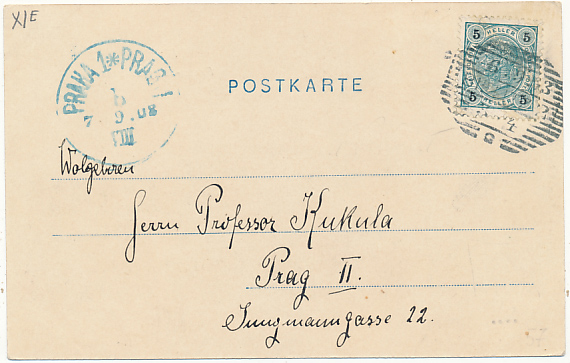 X/E
PRAHA 1 * PRAG 1
b
7. 9. 08
VIII
POSTKARTE
5 HELLER 5
5 HELLER 5
Wolgeboren
Herrn Professor Kukula
Prag II.
Jungmanngasse 22.